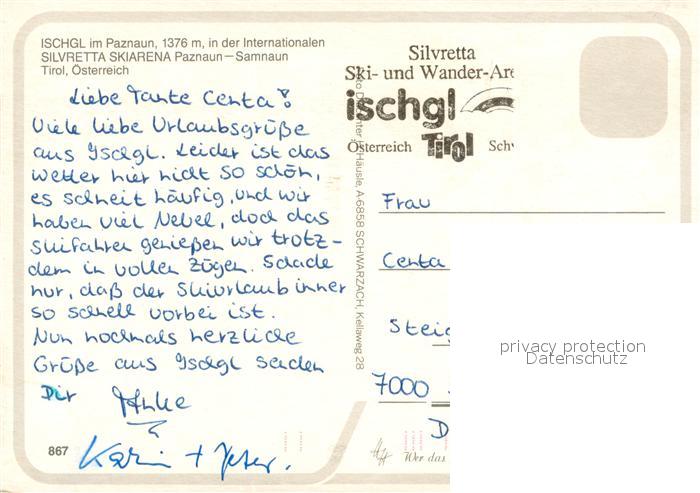 ISCHGL im Paznaun, 1376 m, in der Internationalen
SILVRETTA SKIARENA Paznaun – Samnaun
Tirol, Österreich
Liebe Tante Centa!
Viele liebe Urlaubsgrüße
aus Ischgl. Leider ist das
Wetter hier nicht so schön,
es schneit häufig, und wir
haben viel Nebel, doch das
Skifahren genießen wir trotz-
dem in vollen Zügen. Schade
nur, daß der Skiurlaub immer
so schnell vorbei ist.
Nun nochmals herzliche
Grüße aus Ischgl senden
Dir Anke
Karin + Peter.
867
Häusle, A-6858 SCHWARZACH, Kellaweg 28
Silvretta
Ski- und Wander-Are
ischgl
Österreich Tirol Schw
Frau
Centa
Steig
7000
D
Wer das
privacy protection
Datenschutz